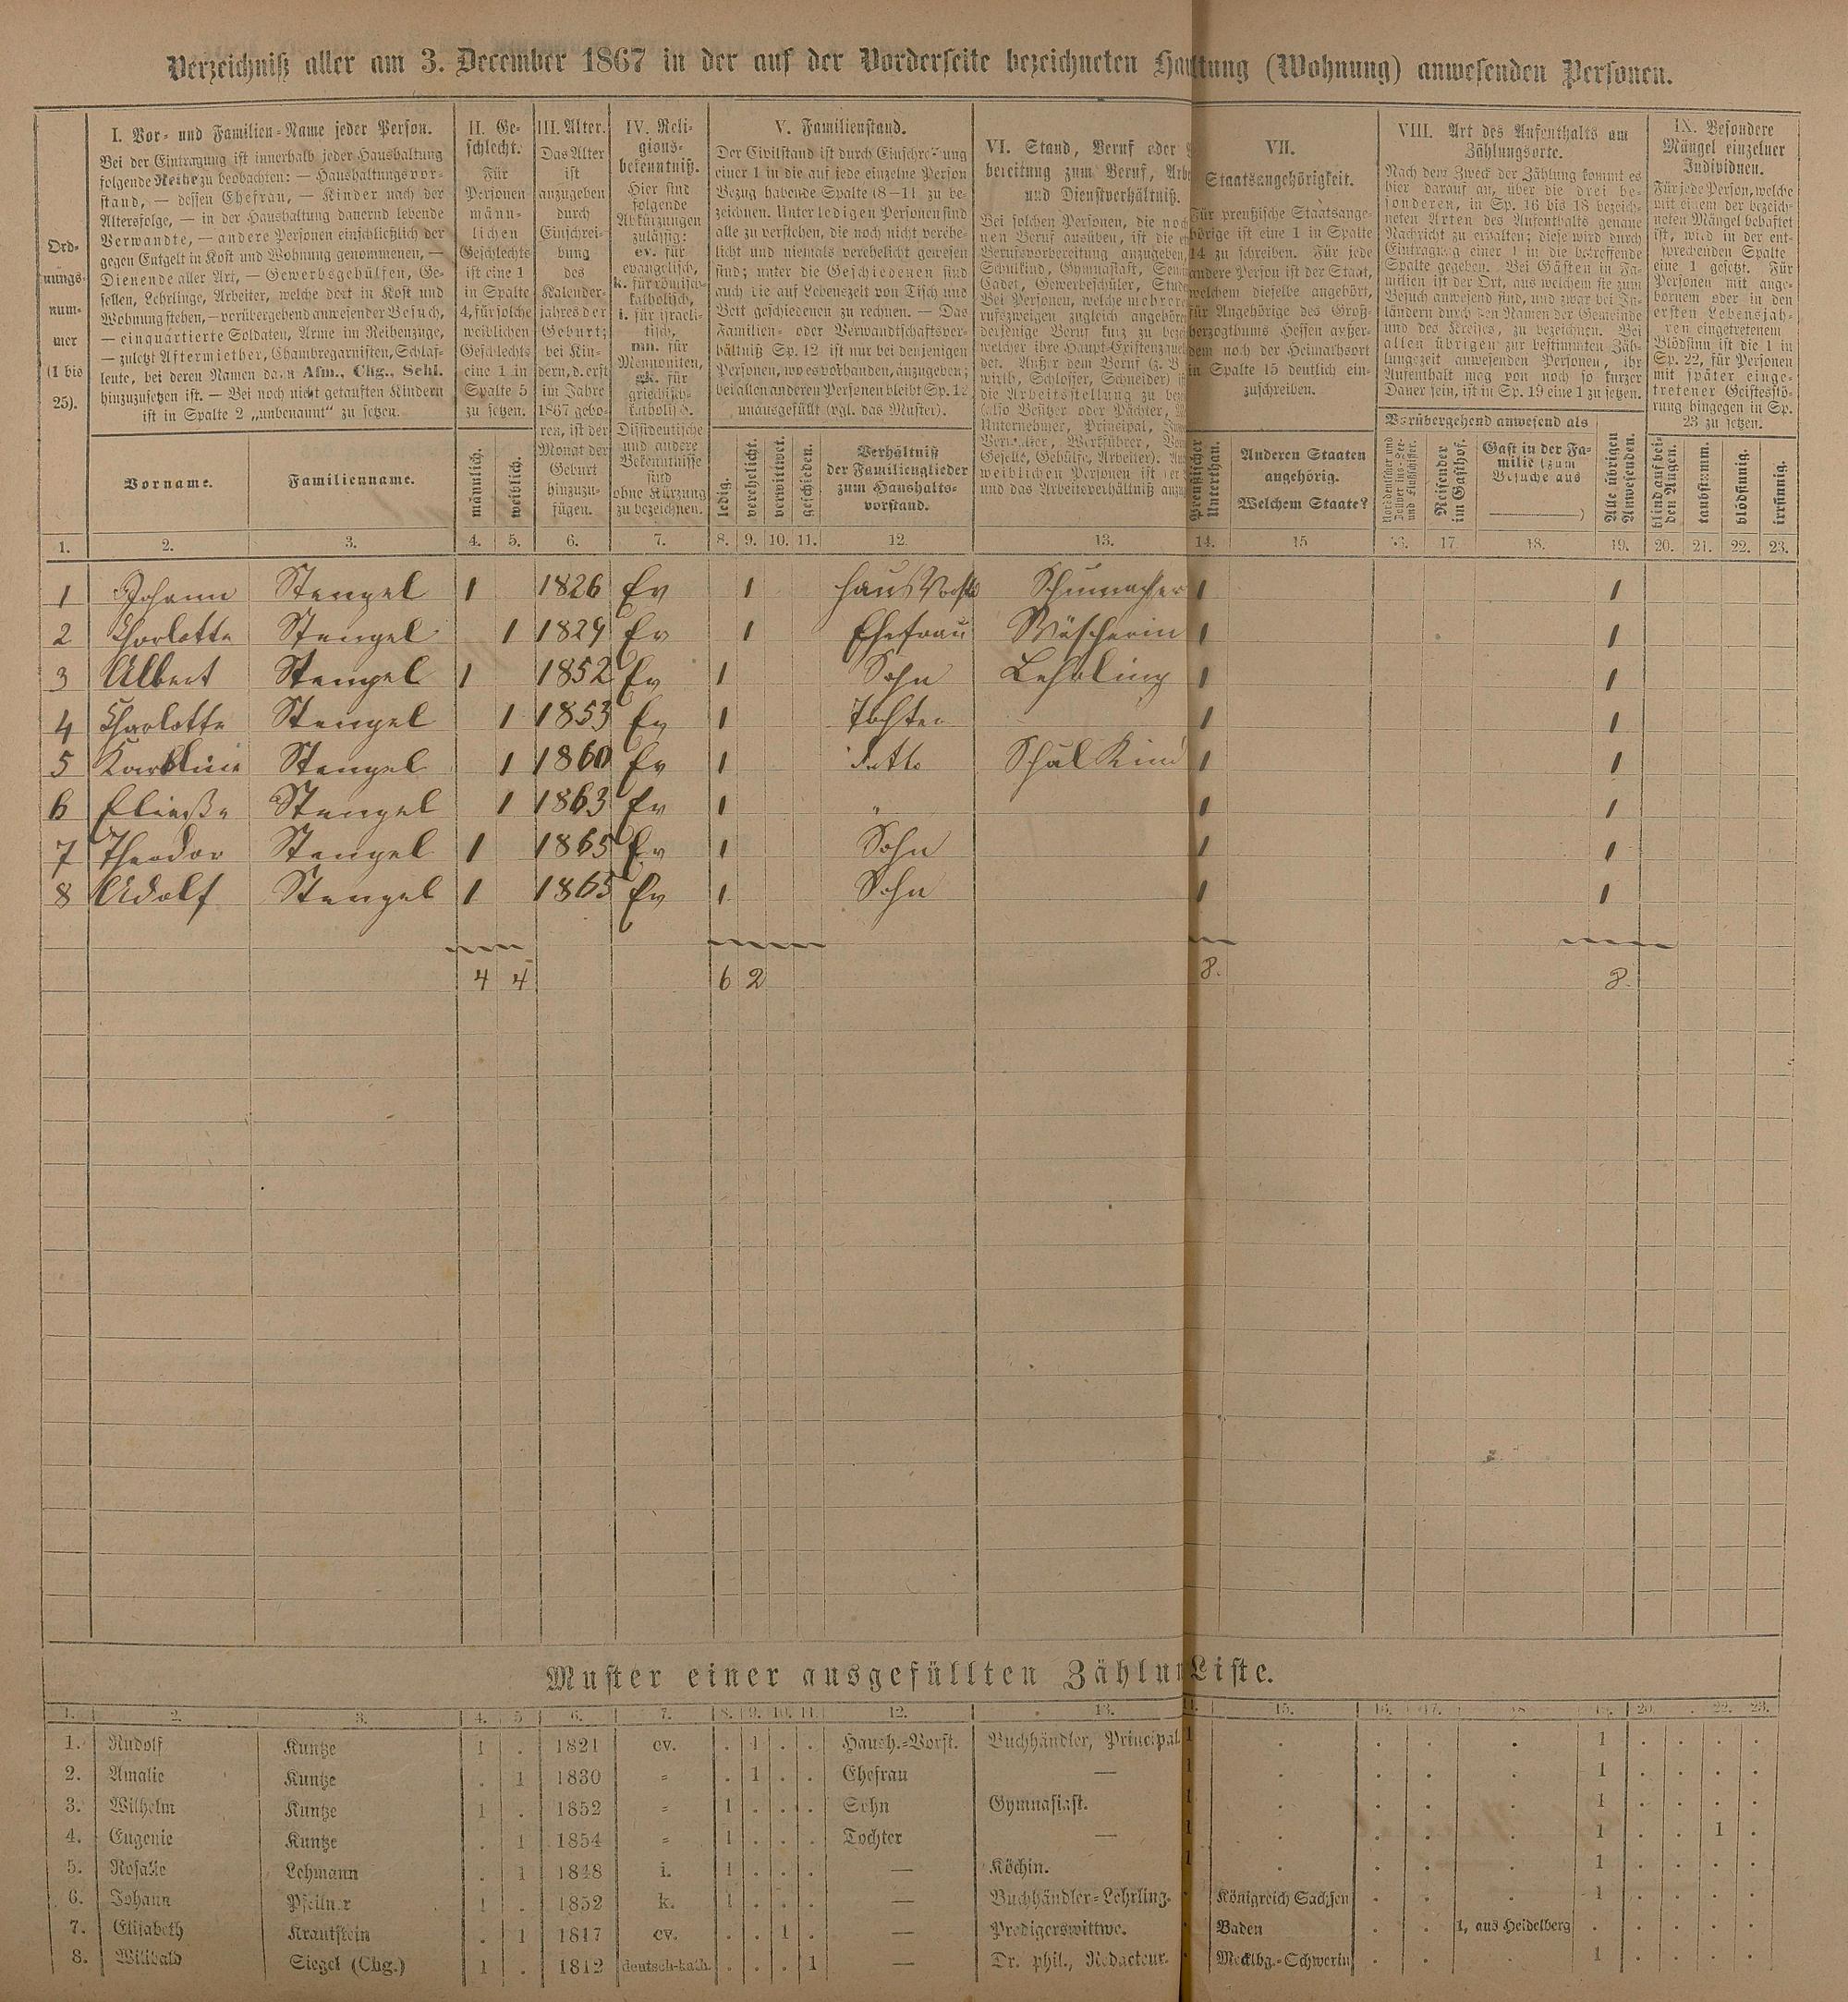 Verzeichniß aller am 3. December 1867 in der auf der Vorderseite bezeichneten Haushaltung (Wohnung) anwesenden Personen.
Ord-
nungs-
num-
mer
(1 bis
25).
I. Vor- und Familien-Name jeder Person.
Bei der Eintragung ist innerhalb jeder Haushaltung
folgende Reihe zu beobachten: — Haushaltungsvor-
stand, — dessen Ehefrau, — Kinder nach der
Altersfolge, — in der Haushaltung dauernd lebende
Verwandte, — andere Personen einschließlich der
gegen Entgelt in Kost und Wohnung genommenen, —
Dienende aller Art, — Gewerbsgehülfen, Ge-
sellen, Lehrlinge, Arbeiter, welche dort in Kost und
Wohnung stehen, — vorübergehend anwesender Besuch,
— einquartierte Soldaten, Arme im Reihenzuge,
— zuletzt Aftermiether, Chambregarnisten, Schlaf-
leute, bei deren Namen dann Afm., Chg., Schl.
hinzuzusetzen ist. — Bei noch nicht getauften Kindern
ist in Spalte 2 „unbenannt" zu setzen.
Vorname.
Familienname.
II. Ge-
schlecht.
Für
Personen
männ-
lichen
Geschlechts
ist eine 1
in Spalte
4, für solche
weiblichen
Geschlechts
eine 1 in
Spalte 5
zu setzen.
männlich.
weiblich.
III. Alter.
Das Alter
ist
anzugeben
durch
Einschrei-
bung
des
Kalender-
jahres der
Geburt;
bei Kin-
dern, d. erst
im Jahre
1867 gebo-
ren, ist der
Monat der
Geburt
hinzuzu-
fügen.
IV. Reli-
gions-
bekenntniß.
Hier sind
folgende
Abkürzungen
zulässig:
ev. für
evangelisch,
k. für römisch-
katholisch,
i. für israeli-
tisch,
mn. für
Mennoniten,
gk. für
griechisch-
katholisch.
Dissidentische
und andere
Bekenntnisse
sind
ohne Kürzung
zu bezeichnen.
V. Familienstand.
Der Civilstand ist durch Einschreibung
einer 1 in die auf jede einzelne Person
Bezug habende Spalte (8—11) zu be-
zeichnen. Unter ledigen Personen sind
alle zu verstehen, die noch nicht verehe-
licht und niemals verehelicht gewesen
sind; unter die Geschiedenen sind
auch die auf Lebenszeit von Tisch und
Bett geschiedenen zu rechnen. — Das
Familien- oder Verwandtschaftsver-
hältniß Sp. 12 ist nur bei denjenigen
Personen, wo es vorhanden, anzugeben;
bei allen anderen Personen bleibt Sp. 12
unausgefüllt (vgl. das Muster).
ledig.
verehelicht.
verwittwet.
geschieden.
Verhältniß
der Familienglieder
zum Haushalts-
vorstand.
VI. Stand, Beruf oder
bereitung zum Beruf,
und Dienstverhältniß.
Bei solchen Personen, die noch
nen Beruf ausüben, ist die
Berufsvorbereitung anzugeben,
Schulkind, Gymnasiast,
Cadet, Gewerbeschüler,
Bei Personen, welche mehrere
rufszweigen zugleich angehören
derjenige Beruf kurz zu
welcher ihre Haupt-Existenzquel
det. Außer dem Beruf (z. B.
wirth, Schlosser, Schneider)
die Arbeitsstellung zu
(also Besitzer oder Pächter,
Unternehmer, Principal,
Verwalter, Werkführer,
Geselle, Gehülfe, Arbeiter).
weiblichen Personen ist der
und das Arbeitsverhältniß
VII.
Staatsangehörigkeit.
Für preußische Staatsange-
hörige ist eine 1 in Spalte
14 zu schreiben. Für jede
andere Person ist der Staat,
welchem dieselbe angehört,
für Angehörige des Groß-
herzogthums Hessen außer-
dem noch der Heimathsort
in Spalte 15 deutlich ein-
zuschreiben.
Preußischer
Unterthan.
Anderen Staaten
angehörig.
Welchem Staate?
VIII. Art des Aufenthalts am
Zählungsorte.
Nach dem Zweck der Zählung kommt es
hier darauf an, über die drei be-
sonderen, in Sp. 16 bis 18 bezeich-
neten Arten des Aufenthalts genaue
Nachricht zu erhalten; diese wird durch
Eintragung einer 1 in die betreffende
Spalte gegeben. Bei Gästen in Fa-
milien ist der Ort, aus welchem sie zum
Besuch anwesend sind, und zwar bei In-
ländern durch den Namen der Gemeinde
und des Kreises, zu bezeichnen. Bei
allen übrigen zur bestimmten Zäh-
lungszeit anwesenden Personen, ihr
Aufenthalt mag von noch so kurzer
Dauer sein, ist in Sp. 19 eine 1 zu setzen.
Vorübergehend anwesend als
Reisender
im Gasthof.
Gast in der Fa-
milie (zum
Besuche aus
)
Alle übrigen
Anwesenden.
IX. Besondere
Mängel einzelner
Individuen.
Für jede Person, welche
mit einem der bezeich-
neten Mängel behaftet
ist, wird in der ent-
sprechenden Spalte
eine 1 gesetzt. Für
Personen mit ange-
bornem oder in den
ersten Lebensjah-
ren eingetretenem
Blödsinn ist die 1 in
Sp. 22, für Personen
mit später einge-
tretener Geistesstö-
rung hingegen in Sp.
23 zu setzen.
blind auf bei-
den Augen.
taubstumm.
blödsinnig.
irrsinnig.
1. 2. 3. 4. 5. 6. 7. 8. 9. 10. 11. 12. 13. 14. 15 16. 17. 18. 19. 20. 21. 22. 23.
1 Johann Stengel 1 1826 Ev 1 Schumacher 1 1
2 Charlotte Stengel 1 1829 Ev 1 Ehefrau Wäscherin 1 1
3 Albert Stengel 1 1852 Ev 1 Sohn Lehrling 1 1
4 Charlotte Stengel 1 1853 Ev 1 Tochter 1 1
5 Karoline Stengel 1 1860 Ev 1 Schul Kind 1 1
6 Stengel 1 1863 Ev 1 " 1 1
7 Theodor Stengel 1 1865 Ev 1 Sohn 1 1
8 Adolf Stengel 1 1865 Ev 1 Sohn 1 1
4 4 6 2 8. 8.
Muster einer ausgefüllten Zählungs-Liste.
1. 2. 3. 4. 5 6. 7. 8. 9. 10. 11. 12. 13. 14. 15. 16. 17. 18 19. 20 . 22. 23.
1. Rudolf Kuntze 1 . 1821 ev. . 1 . . Haush.-Vorst. Buchhändler, Principal 1 . . . . 1 . . . .
2. Amalie Kuntze . 1 1830 = . 1 . . Ehefrau — 1 . . . . 1 . . . .
3. Wilhelm Kuntze 1 . 1852 = 1 . . . Sohn Gymnasiast. 1 . . . . 1 . . . .
4. Eugenie Kuntze . 1 1854 = 1 . . . Tochter — 1 . . . . 1 . . 1 .
5. Rosalie Lehmann . 1 1848 i. 1 . . . — Köchin. 1 . . . . 1 . . . .
6. Johann Pfeilner 1 . 1852 k. 1 . . . — Buchhändler-Lehrling. . Königreich Sachsen . . . 1 . . . .
7. Elisabeth Krautstein . 1 1817 ev. . . 1 . — Predigerswittwe. . Baden . . 1, aus Heidelberg . . . . .
8. Wilibald Siegel (Chg.) 1 . 1812 deutsch-kath. . . . 1 — Dr. phil., Redacteur. . Mecklbg.-Schwerin . . . 1 . . . .